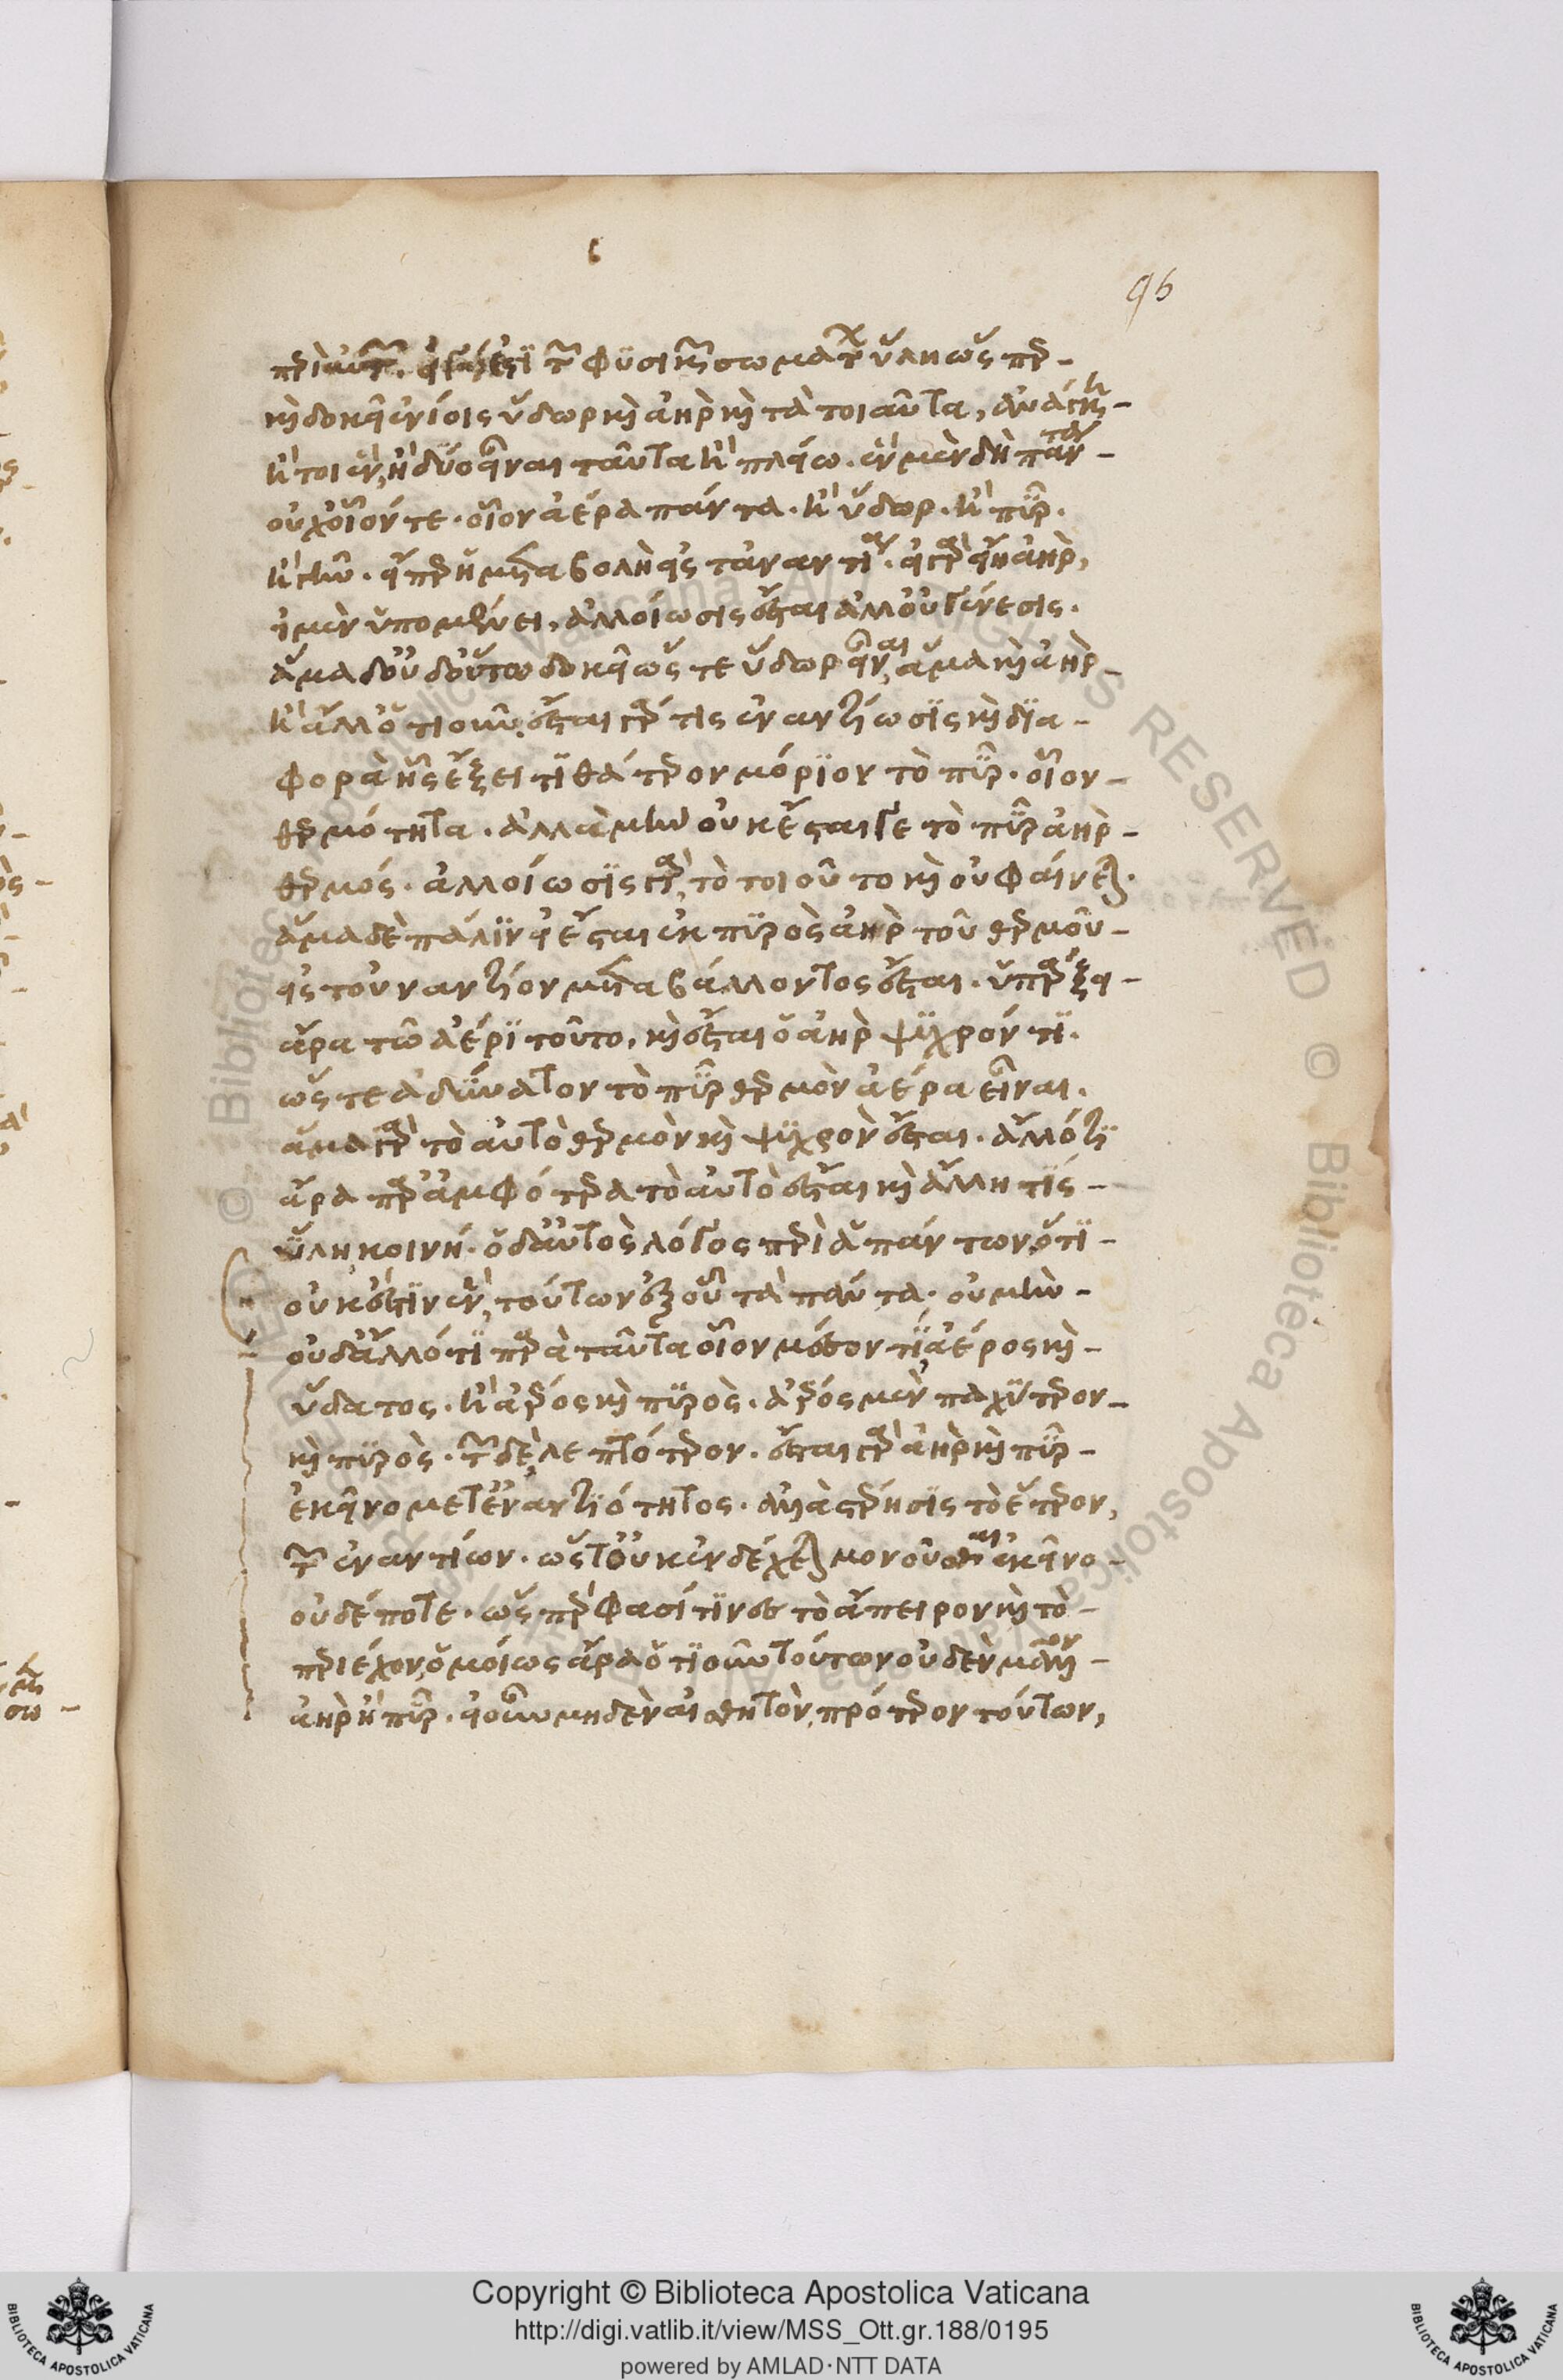 περὶ αὐτῶν. εἰ γάρ ἐστι τῶν φυσικῶν σωμάτων ὕλη ὥσπερ
καὶ δοκεῖ ἐνίοις ὕδωρ καὶ ἀὴρ καὶ τὰ τοιαῦτα, ἀνάγκη
ἤτοι ἓν, ἢ δύο εἶναι ταῦτα ἢ πλείω. ἓν μὲν δὴ πάντα
οὐχ οἷόν τε. οἷον ἀέρα πάντα. ἢ ὕδωρ. ἢ πῦρ.
ἢ γῆν. εἴπερ ἡ μεταβολὴ εἰς τἀναντία. εἰ γὰρ εἴη ἀὴρ,
εἰ μὲν ὑπομένει, ἀλλοίωσις ἔσται ἀλλ' οὐ γένεσις.
ἅμα δ' οὐδ' οὕτω δοκεῖ ὥστε ὕδωρ εἶναι, ἅμα καὶ ἀὴρ
ἢ ἄλλ' ὁτιοῦν. ἔσται γάρ τις ἐναντίωσις καὶ δια
φορὰ ἧς ἕξει τι θάτερον μόριον τὸ πῦρ. οἷον
θερμότητα. ἀλλὰ μὴν οὐκ ἔσται γε τὸ πῦρ ἀὴρ
θερμός. ἀλλοίωσις γὰρ, τὸ τοιοῦτο καὶ οὐ φαίνεται.
ἅμα δὲ πάλιν εἰ ἔσται ἐκ πυρὸς ἀὴρ τοῦ θερμοῦ
εἰς τοὐναντίον μεταβάλλοντος ἔσται. ὑπάρξει
ἄρα τῶ ἀέρι τοῦτο, καὶ ἔσται ὁ ἀὴρ ψυχρόν τι.
ὥστε ἀδύνατον τὸ πῦρ θερμὸν ἀέρα εἶναι.
ἅμα γὰρ τὸ αὐτὸ θερμὸν καὶ ψυχρὸν ἔσται. ἄλλό τι
ἄρα παρ' ἀμφότερα τὸ αὐτὸ ἔσται καὶ ἄλλη τίς
ὕλη κοινή. ὁ δ' αὐτὸς λόγος περὶ ἁπάντων, ὅτι
οὐκ ἔστιν ἓν, τούτων ἐξ οὗ τὰ πάντα. οὐ μὴν
οὐδ' ἄλλό τι παρὰ ταῦτα οἷον μέσον τι ἀέρος καὶ
ὕδατος. ἢ ἀέρος καὶ πυρὸς. ἀέρος μὲν παχύτερον
καὶ πυρὸς. τῶν δὲ, λεπτότερον. ἔσται γὰρ ἀὴρ καὶ πῦρ
ἐκεῖνο μετ' ἐναντιότητος. ἀλλὰ στέρησις τὸ ἕτερον,
τῶν ἐναντίων. ὥστ' οὐκ ἐνδέχεται μονοῦσθαι ἐκεῖνο
οὐδέποτε. ὥσπερ φασί τινες τὸ ἄπειρον καὶ τὸ
περιέχον, ὁμοίως ἄρα ὁτιοῦν τούτων οὐδὲν μᾶλλον
ἀὴρ ἢ πῦρ. εἰ οὖν μηδὲν αἰσθητὸν, πρότερον τούτων,
Copyright © Biblioteca Apostolica Vaticana
http://digi.vatlib.it/view/MSS_Ott.gr.188/0195
powered by AMLAD·NTT DATA